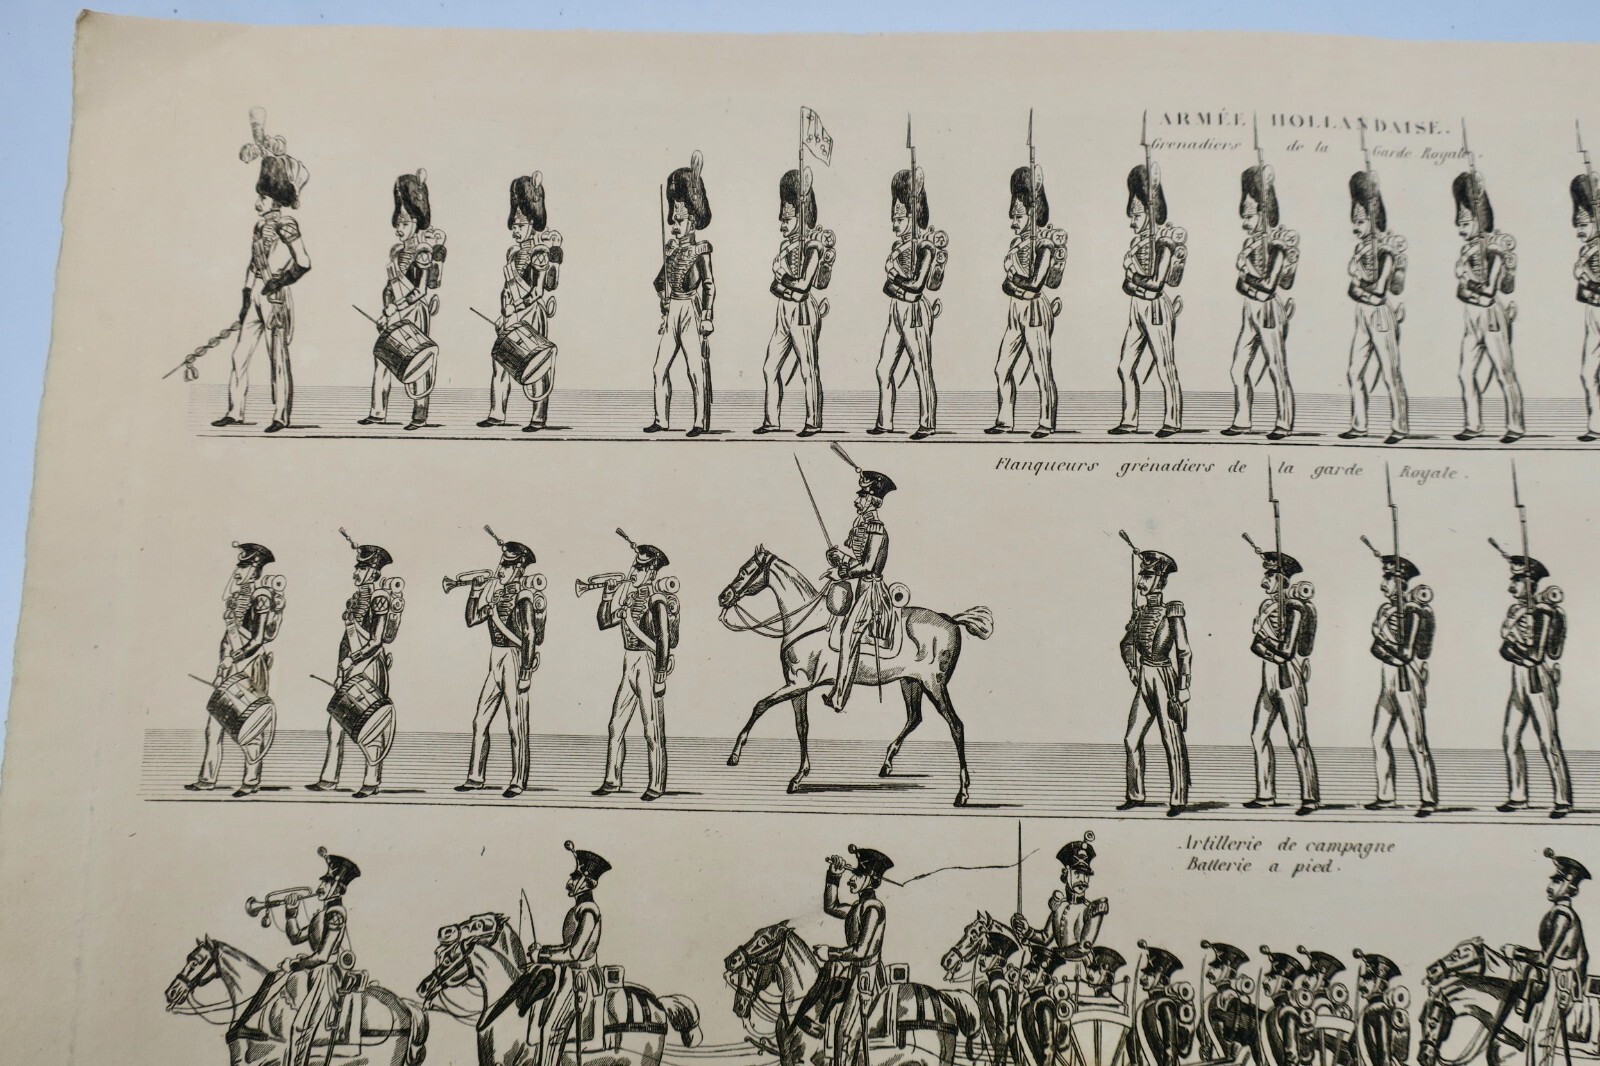 ARMÉE HOLLANDAISE.
Grenadiers de la Garde Royale.
Flanqueurs grénadiers de la garde Royale.
Artillerie de campagne
Batterie a pied.